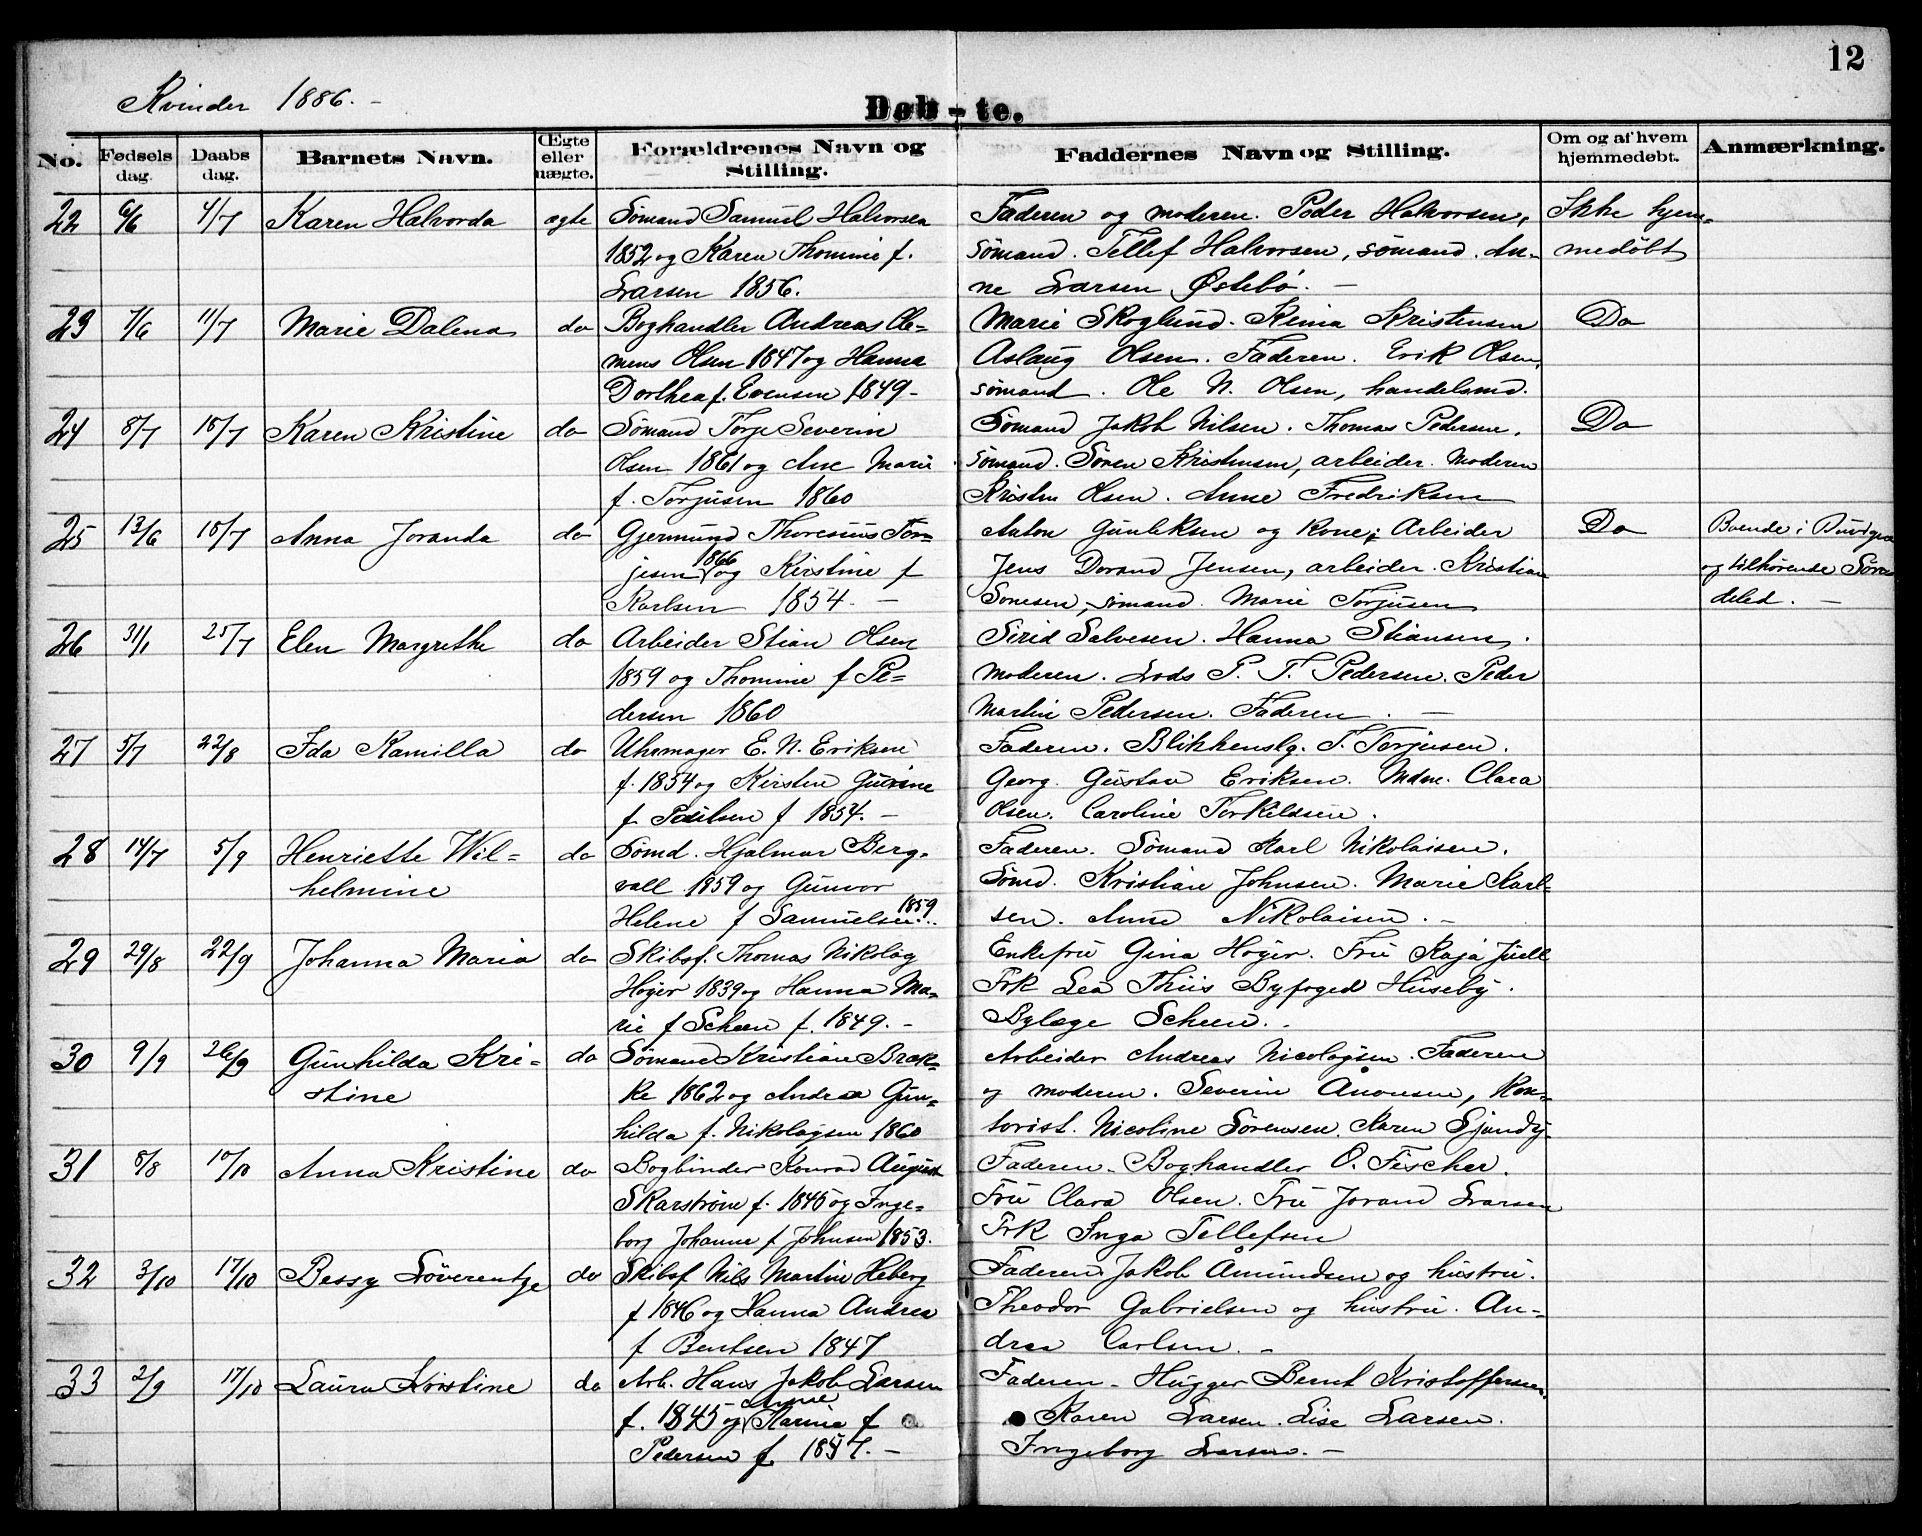 12
Kvinder 1886.-
Døb-te.
No. Fødsels dag. Daabs dag. Barnets Navn. Ægte eller uægte. Forældrenes Navn og Stilling. Faddernes Navn og Stilling. Om og af hvem hjemmedøbt. Anmærkning.
22 6/6 4/7 Karen Halvorda ægte Sømand Samuel Halvorsen Faderen og moderen. Peder Halvorsen, Ikke hjem-
1852 og Karen Thomine f. sømand. Tellef Halvorsen, sømand. An- medøbt
Larsen 1856. ne Larsen Østebø. -
23 7/6 11/7 Marie Dalena do Boghandler Andreas Cle- Marie Skoglund. Kima Kristensen Do
mens Olsen 1847 og Hanna Aslaug Olsen. Faderen. Erik Olsen,
Dorthea f. Evensen 1849- sømand. Ole N. Olsen, handelsmd.
24 8/7 18/7 Karen Kristine do Sømand Torje Severin Sømand Jakob Nilsen. Thomas Pedersen. Do
Olsen 1861 og Ane Marie sømand. Søren Kristensen, arbeider. Moderen
f. Torjusen 1860 Kristen Olsen. Anne Fredriksen
25 13/6 18/7 Anna Joranda do Gjermund Thoresius Tor- Anton Gunleksen og kone; Arbeider Do Boende i
jesen 1866 og Kirstine f Jens Dorand Jensen, arbeider. Kristian og tilhørende Sønde
Karlsen 1854. - Sonesen, sømand. Marie Torjusen deled. -
26 31/1 25/7 Elen Margrethe do Arbeider Stian Olsen Sirid Salvesen. Hanna Stiansen.
1859 og Thomine f Pe- moderen. Lods P. T. Pedersen. Peder
dersen 1860 Martin Pedersen. Faderen. -
27 5/7 22/8 Ida Kamilla do Uhrmager E. N. Eriksen Faderen. Blikkenslg. T. Torjusen.
f. 1854 og Kirsten Gurine Georg. Gustav Eriksen. Mdm. Clara
f Paulsen f 1854. - Olsen. Caroline Torkildsen.
28 14/7 5/9 Henriette Wil- do Sømd. Hjalmar Berg- Faderen. Sømand Karl Nikolaisen.
helmine vall 1859 og Gunvor Sømd. Kristian Johnsen. Marie Karl-
Helene f Samuelsen 1859.. sen. Anne Nikolaisen. -
29 29/8 22/9 Johanna Maria do Skibsf. Thomas Nikolay Enkefru Gina Høyer. Fru Kaja Juell
Høyer 1839 og Hanna Ma- Frk Lea Thiis Byfoged Huseby.
rie f Scheen f. 1849. - Bylæge Scheen. -
30 9/9 26/9 Gunhilda Kri- do Sømand Kristian Brek- Arbeider Andreas Nicolaysen. Faderen
stine ke 1862 og Andrea Gun- og moderen. Severin Ånonsen, kon-
hilda f. Nikolaysen 1860 torist. Nicoline Sørensen. Karen
31 8/8 10/10 Anna Kristine do Bogbinder Konrad August Faderen. Boghandler O. Fischer.
Skarstrøm f. 1845 og Inge- Fru Clara Olsen. Fru Jorand Larsen
borg Johanne f Johnsen 1853. Frk Inga Tellefsen
32 3/10 17/10 Bessy Løverentze do Skibsf Nils Martin Heberg Faderen Jakob Åmundsen og hustru.
f 1846 og Hanna Andrea Theodor Gabrielsen og hustru. An-
f Bentsen 1847 drea Carlsen. -
33 2/9 17/10 Laura Kristine do Arb. Hans Jakob Larsen Faderen - Hugger Bernt Kristoffersen.
f. 1845 og Anne Karine f Karen Larsen. Lise Larsen.
Pedersen f 1857. - Ingeborg Larsen. -